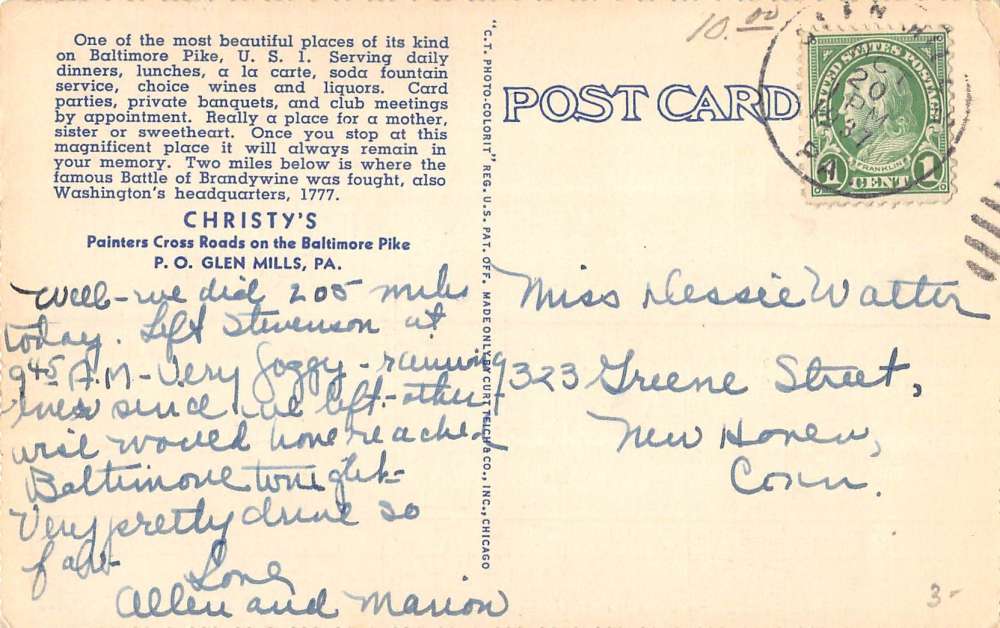 One of the most beautiful places of its kind
on Baltimore Pike, U. S. 1. Serving daily
dinners, lunches, a la carte, soda fountain
service, choice wines and liquors. Card
parties, private banquets, and club meetings
by appointment. Really a place for a mother,
sister or sweetheart. Once you stop at this
magnificent place it will always remain in
your memory. Two miles below is where the
famous Battle of Brandywine was fought, also
Washington's headquarters, 1777.
CHRISTY'S
Painters Cross Roads on the Baltimore Pike
P. O. GLEN MILLS, PA.
Well - we did 205 miles
today. Left Stevenson at
9 45 A.M - Very foggy - raining
ever since we left - other-
wise would have reached
Baltimore tonight -
Very pretty drive so
far -
Love
Allen and Marion
"C.T. PHOTO-COLORIT" REG. U.S. PAT. OFF. MADE ONLY BY CURT TEICH & CO., INC., CHICAGO
10.00
POST CARD
UNITED STATES POSTAGE
FRANKLIN
1 CENT 1
Miss Dessie Walter
323 Greene Street,
New Haven,
Conn.
3-